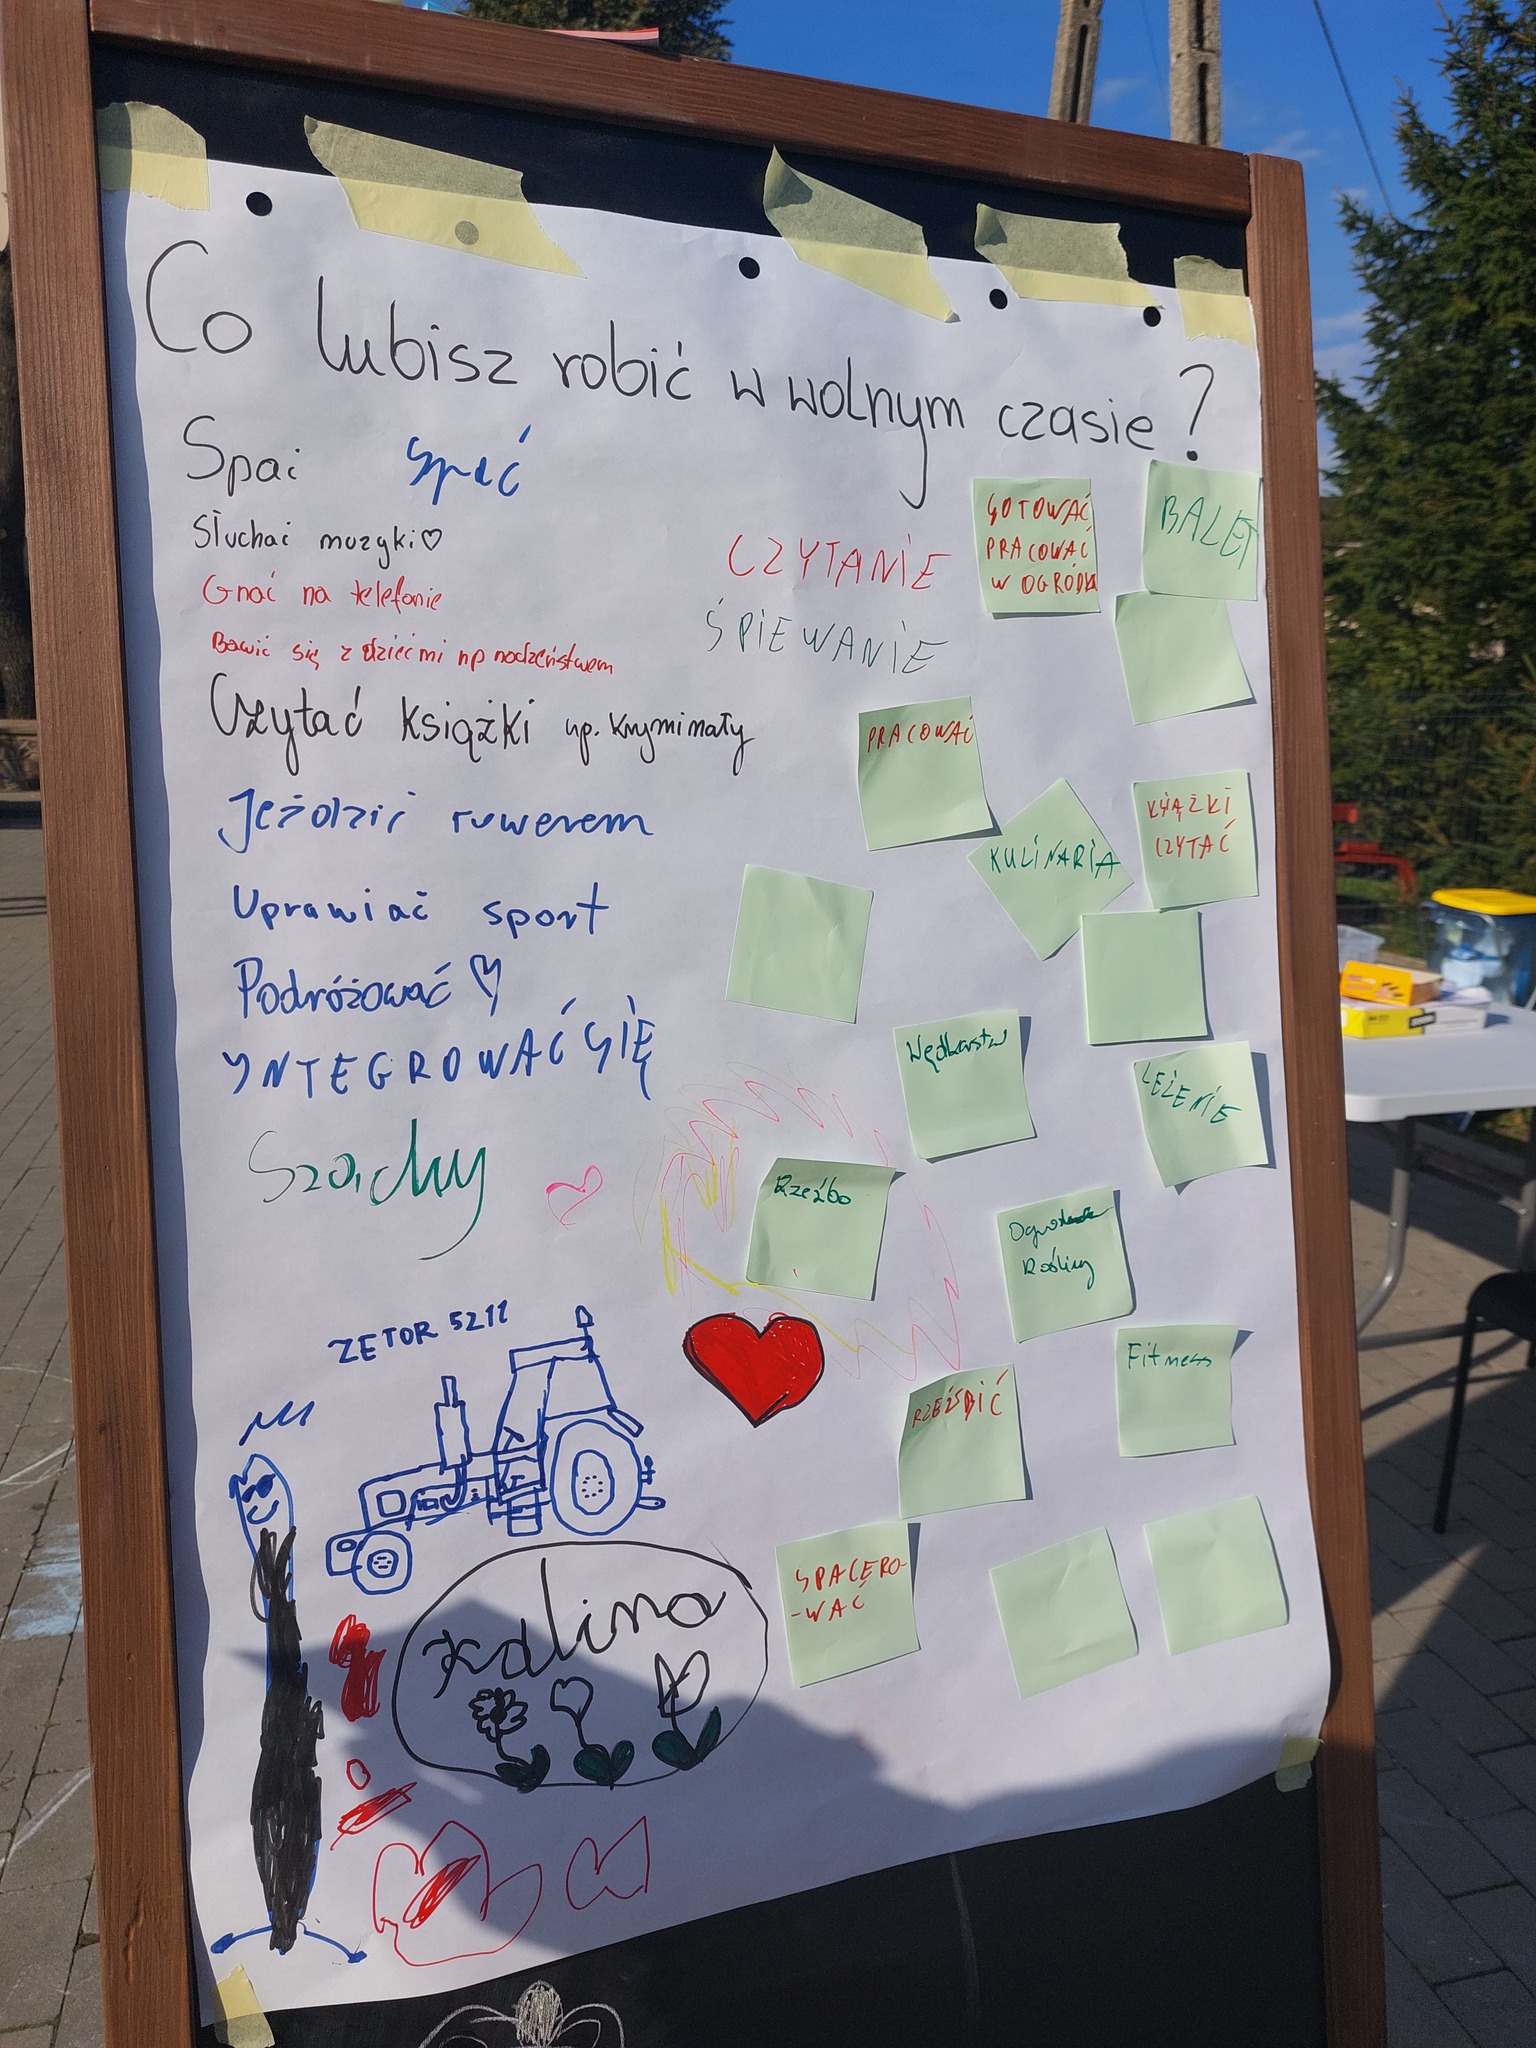 Co lubisz robić w wolnym czasie?
Spać spać
Słuchać muzyki
Grać na telefonie
Bawić się z dziećmi np rodzeństwem
Czytać książki np. kryminały
Jeździć rowerem
Uprawiać sport
Podróżować
INTEGROWAĆ SIĘ
Szachy
CZYTANIE
ŚPIEWANIE
GOTOWAĆ
PRACOWAĆ
W OGRÓDK
BALET
PRACOWAĆ
KULINARIA
KSIĄŻKI
CZYTAĆ
Wędkarstw
LEŻENIE
Rzeźba
Rośliny
Fitness
RZEŹBIĆ
SPACERO-
-WAĆ
ZETOR 5211
Kalina